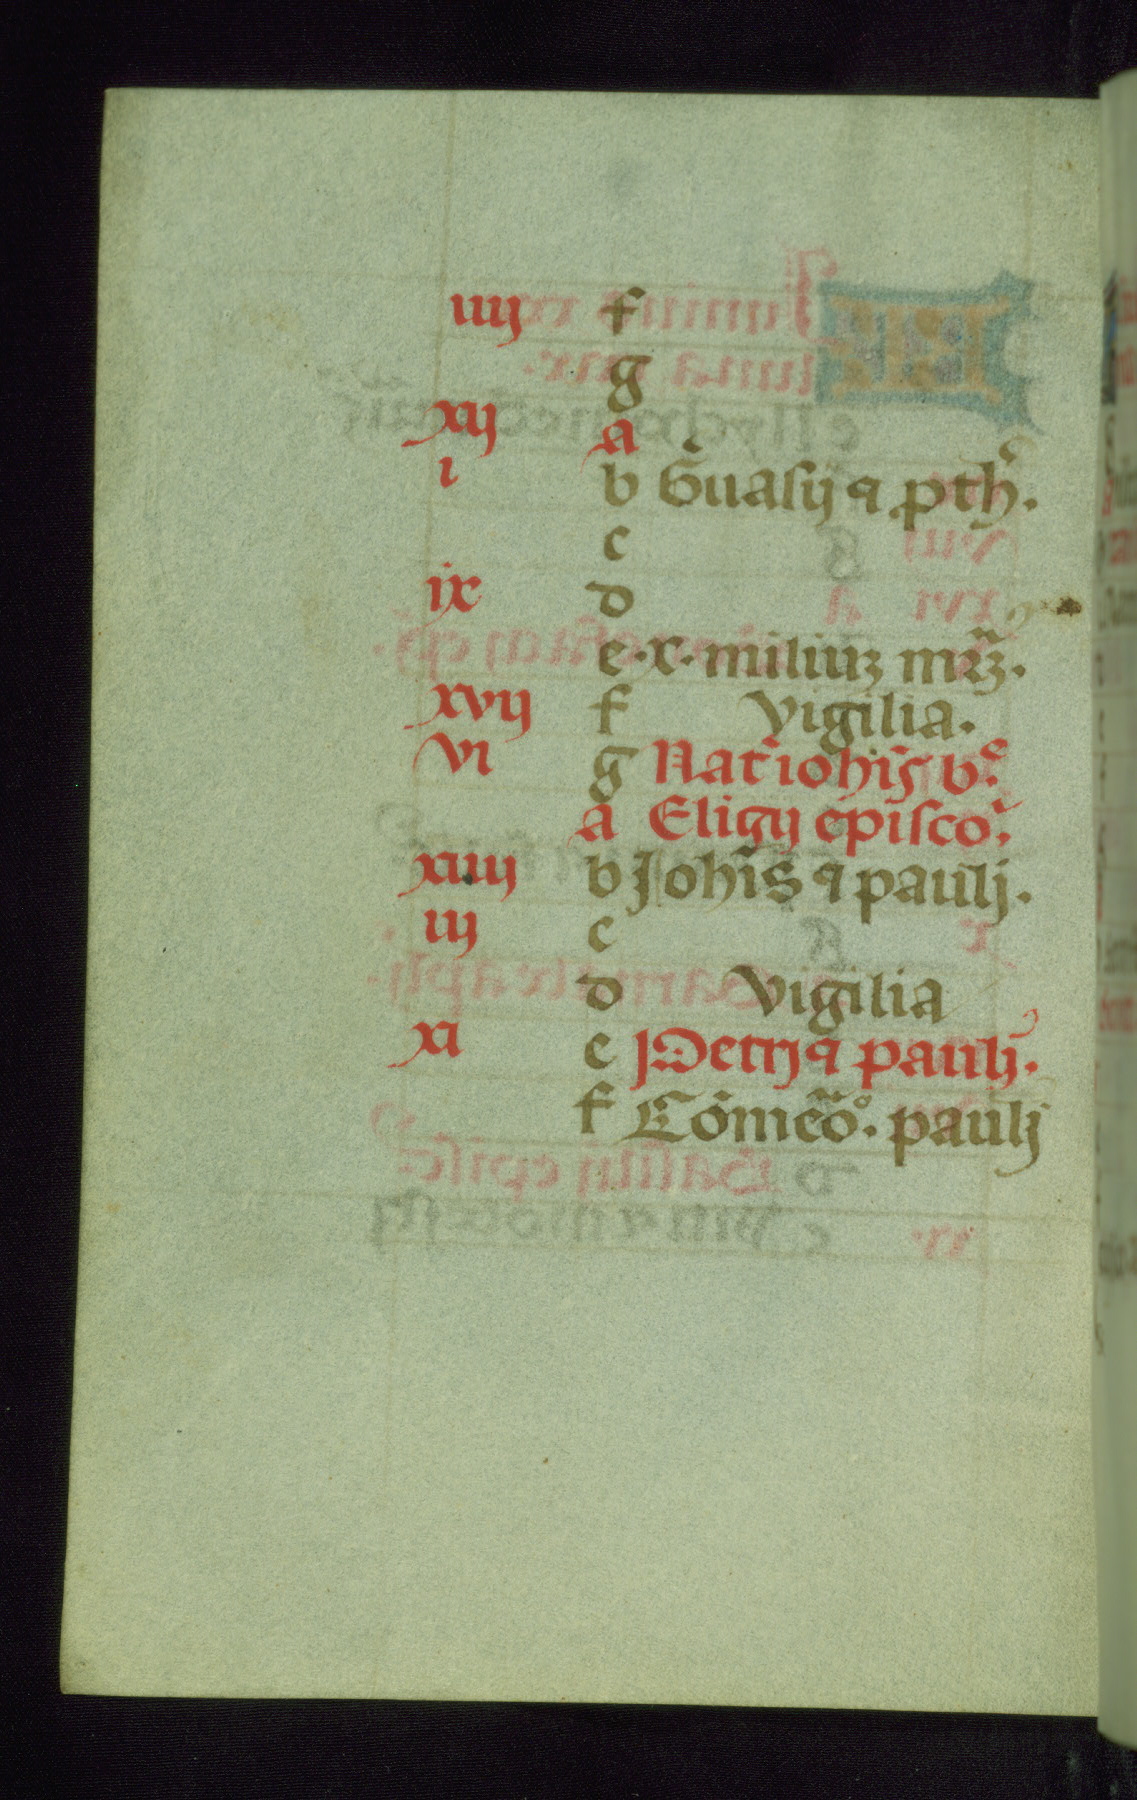 iiij f
g
xij a
i b G̃uasij ⁊ ꝓth̾.
c
ix d
e .x. miliuꝫ mr̃ꝫ.
xvij f Vigilia.
vi g Nat̾ iohĩs b.e
a Eligij epĩsco᷒.
xiiij b Johĩs ⁊ paulj.
iij c
d Vigilia
xi e Petrj ⁊ paulj̾.
f Com̃eõ°. paulj